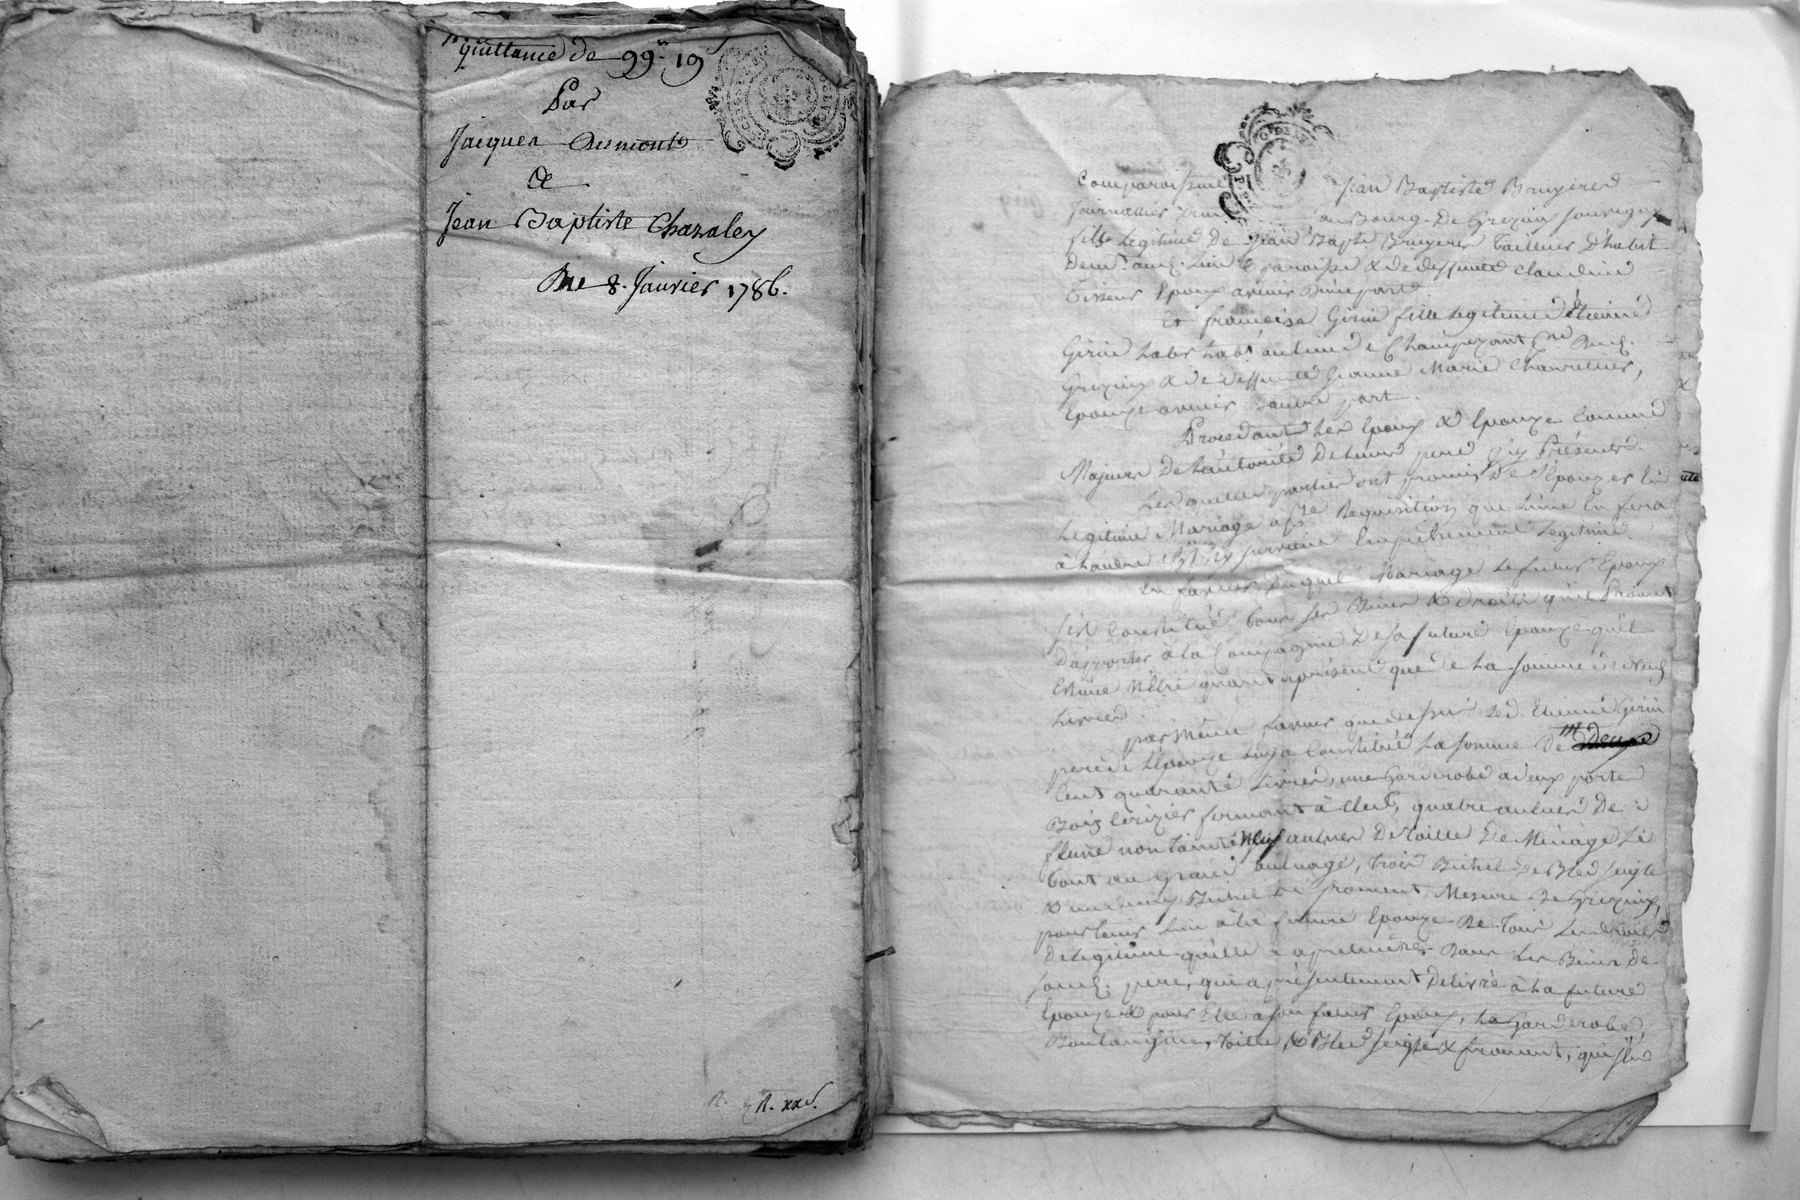 Quittance de 99# 19s
Par
Jacques Dumont
a
Jean Baptiste Chazaley
Du 8. Janvier 1786.
R. xxs.
Comparoissent Jean Baptiste Bruyere
Journallier Bourg De Grezieu
fils Legitime De Jean Bapte Bruyere Tailleur D'habit
Demt. audt. Lieu & paroisse & de deffunte Claudine
Tisseur Epoux avenir D'une part.
Et francoise Girin fille Legitime d'Etienne
Girin habt. au lieu de
Grezieu & de deffunte Jeanne Marie
Epouze avenir D'autre part.
Procedant Les Epoux & Epouze Comme
Majeurs De L'autorité De Leurs pere icy Présents.
Lesquelle partie ont promis De S'Epouzer En
Legitime Mariage a pre. Requisition que L'une En fera
à L'autre S'il N'y survient Empéchement Legitime.
En faveur Duquel Mariage Le futur Epoux
S'est Constitué Tous Ses Biens & droits qu'il Promet
D'apporter à la Compagnie De Sa future Epouze qu'il
Estime N'étre quant apresent que de La Somme de
Livres.
par Méme faveur que dessus Led. Etienne Girin
pere de L'Epouze Luy a Constitué La Somme De
Cent quarante Livres, une Garderobe a deux portes
Bois Cerizier fermant à Clef, quatre aulnes De
non Neuf aulnes De Toille De Ménage Le
Tout au Grand aulnage, trois Bichet De Bled Seigle
& un Bichet De froment, Mesure De Grezieu,
pour tenir Lieu à La future Epouze De Tous Les droits
De Legitime qu'elle a a pretendre Dans Les Biens De
Sond. pere, qui a présentement Delivré à La future
Epouze & pour Elle a Son futur Epoux, La Garderobe,
Toille, & Bled Seigle & froment, qui S'En